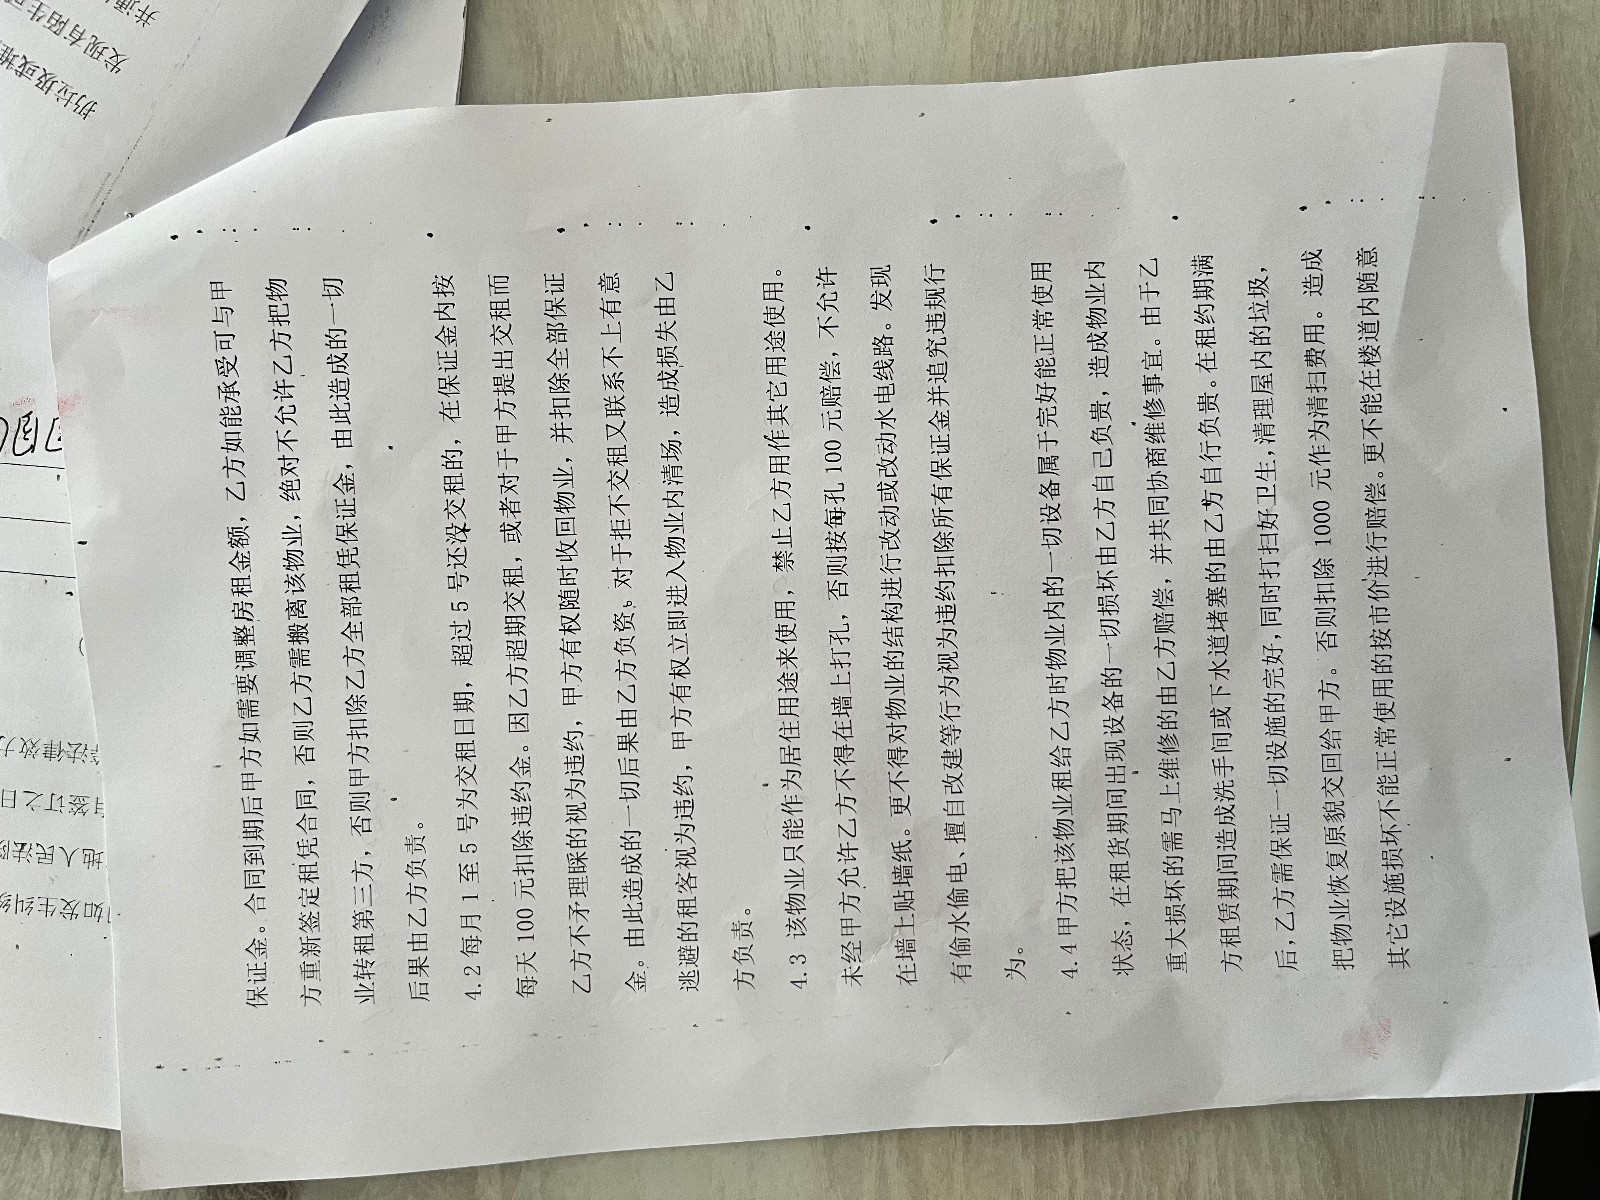 保证金。合同到期后甲方如需要调整房租金额，乙方如能承受可与甲
方重新签定租凭合同，否则乙方需搬离该物业，绝对不允许乙方把物
业转租第三方，否则甲方扣除乙方全部租凭保证金，由此造成的一切
后果由乙方负责。
4.2 每月 1 至 5 号为交租日期，超过 5 号还没交租的，在保证金内按
每天 100 元扣除违约金。因乙方超期交租，或者对于甲方提出交租而
乙方不矛理睬的视为违约，甲方有权随时收回物业，并扣除全部保证
金。由此造成的一切后果由乙方负资。对于拒不交租又联系不上有意
逃避的租客视为违约，甲方有权立即进入物业内清场，造成损失由乙
方负责。
4.3 该物业只能作为居住用途来使用，禁止乙方用作其它用途使用。
未经甲方允许乙方不得在墙上打孔，否则按每孔 100 元赔偿，不允许
在墙上贴墙纸。更不得对物业的结构进行改动或改动水电线路。发现
有偷水偷电、擅自改建等行为视为违约扣除所有保证金并追究违规行
为。
4.4 甲方把该物业租给乙方时物业内的一切设备属于完好能正常使用
状态，在租货期间出现设备的一切损坏由乙方自己负贵，造成物业内
重大损坏的需马上维修的由乙方赔偿，并共同协商维修事宜。由于乙
方租赁期间造成洗手间或下水道堵塞的由乙方自行负贵。在租约期满
后，乙方需保证一切设施的完好，同时打扫好卫生，清理屋内的垃圾，
把物业恢复原貌交回给甲方。否则扣除 1000 元作为清扫费用。造成
其它设施损坏不能正常使用的按市价进行赔偿。更不能在楼道内随意
扔垃圾或堆
发现有陌生
并通
如发生纠纷
地人民法院
自签订之日
法律效力